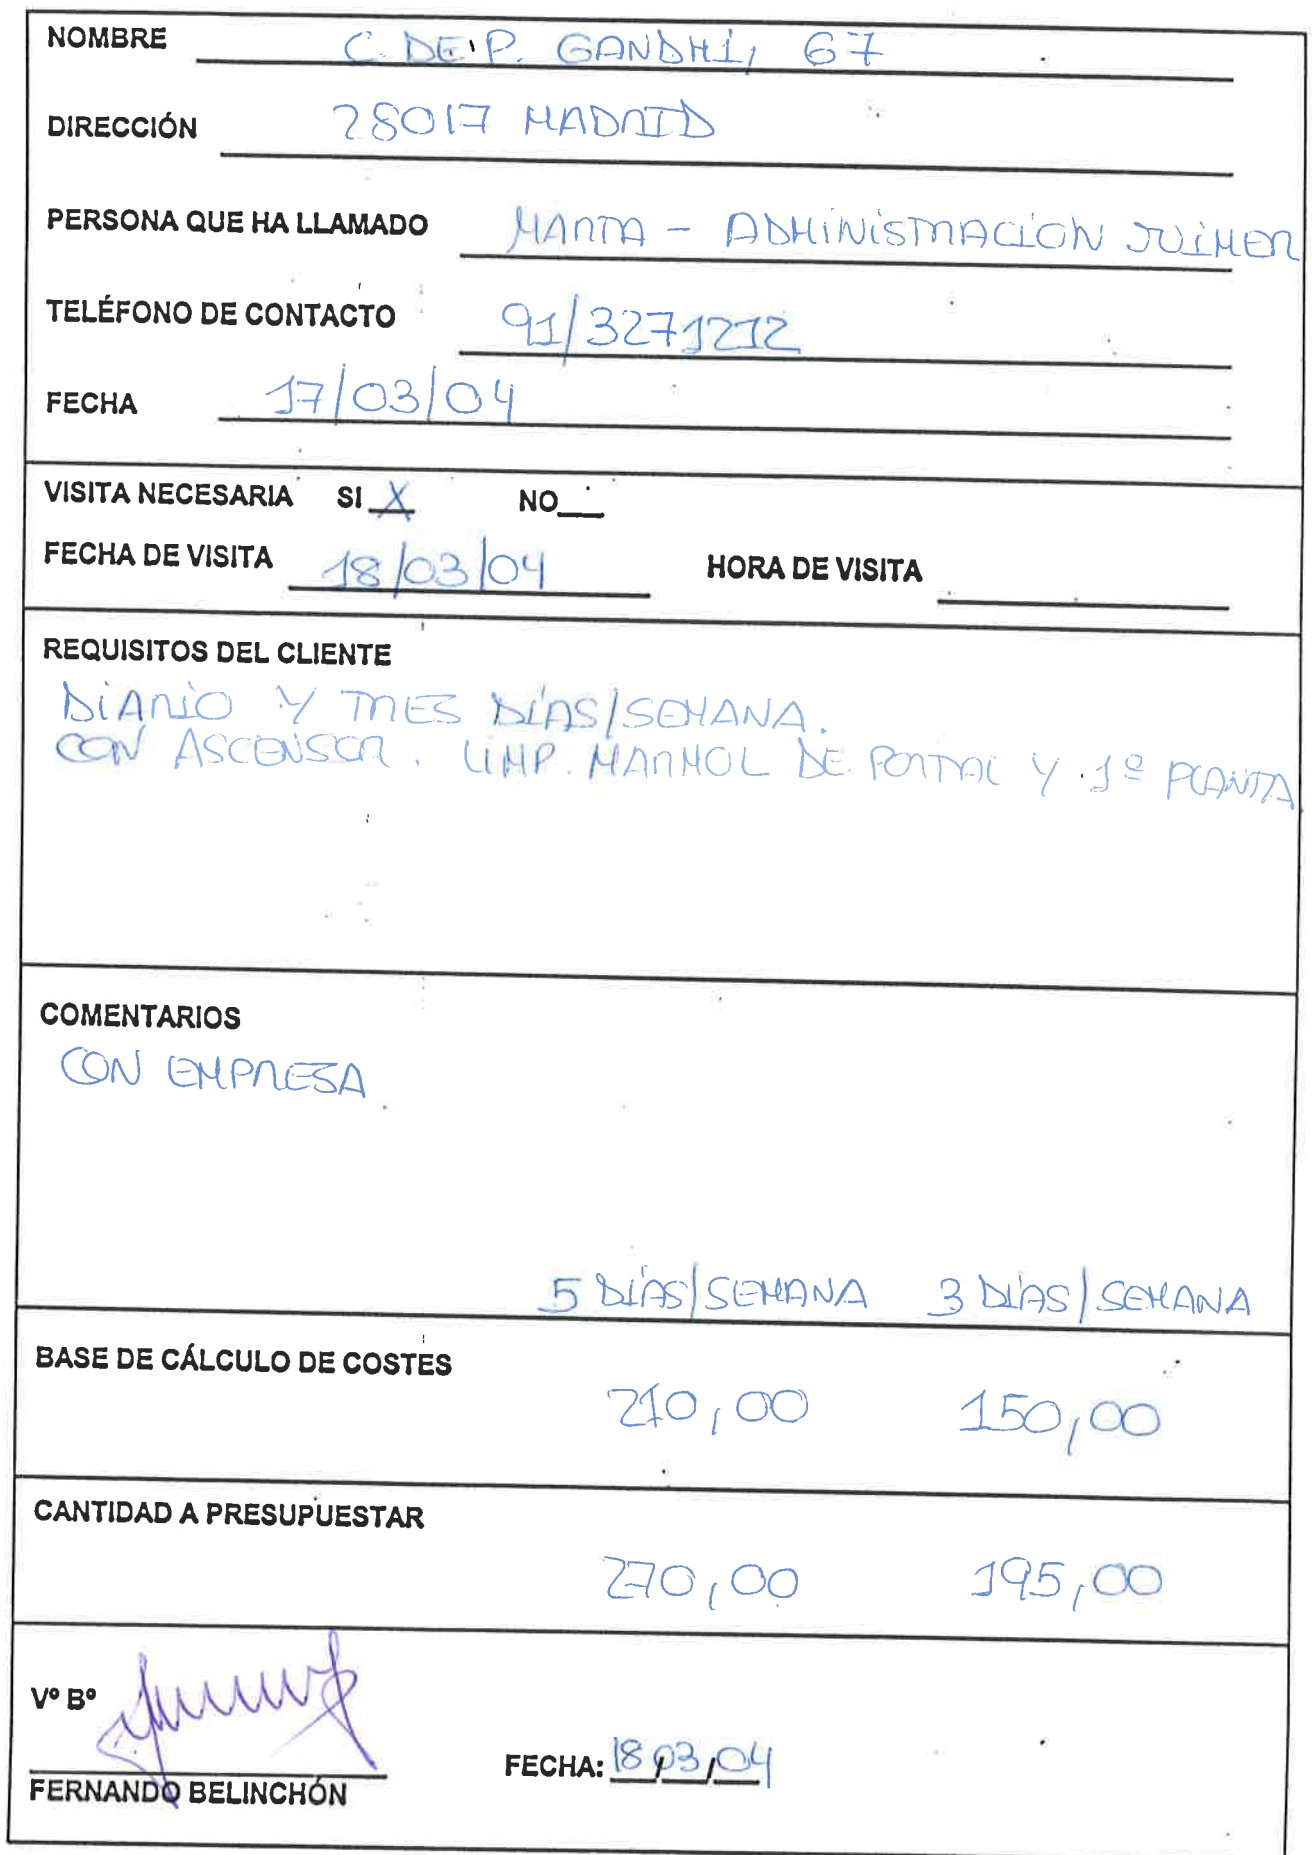 NOMBRE C. DE P. GANDHI, 67
DIRECCIÓN 28017 MADRID
PERSONA QUE HA LLAMADO MARTA - ADMINISTRACIÓN JUIMER
TELÉFONO DE CONTACTO 91/3271212
FECHA 17/03/04
VISITA NECESARIA SI X NO__
FECHA DE VISITA 18/03/04 HORA DE VISITA
REQUISITOS DEL CLIENTE
DIARIO Y TRES DÍAS/SEMANA.
CON ASCENSOR. LIMP. MARMOL DE PORTAL Y 1º PLANTA
COMENTARIOS
CON EMPRESA
5 DÍAS/SEMANA 3 DÍAS/SEMANA
BASE DE CÁLCULO DE COSTES
210,00 150,00
CANTIDAD A PRESUPUESTAR
270,00 195,00
Vº Bº
FECHA: 18/03/04
FERNANDO BELINCHÓN